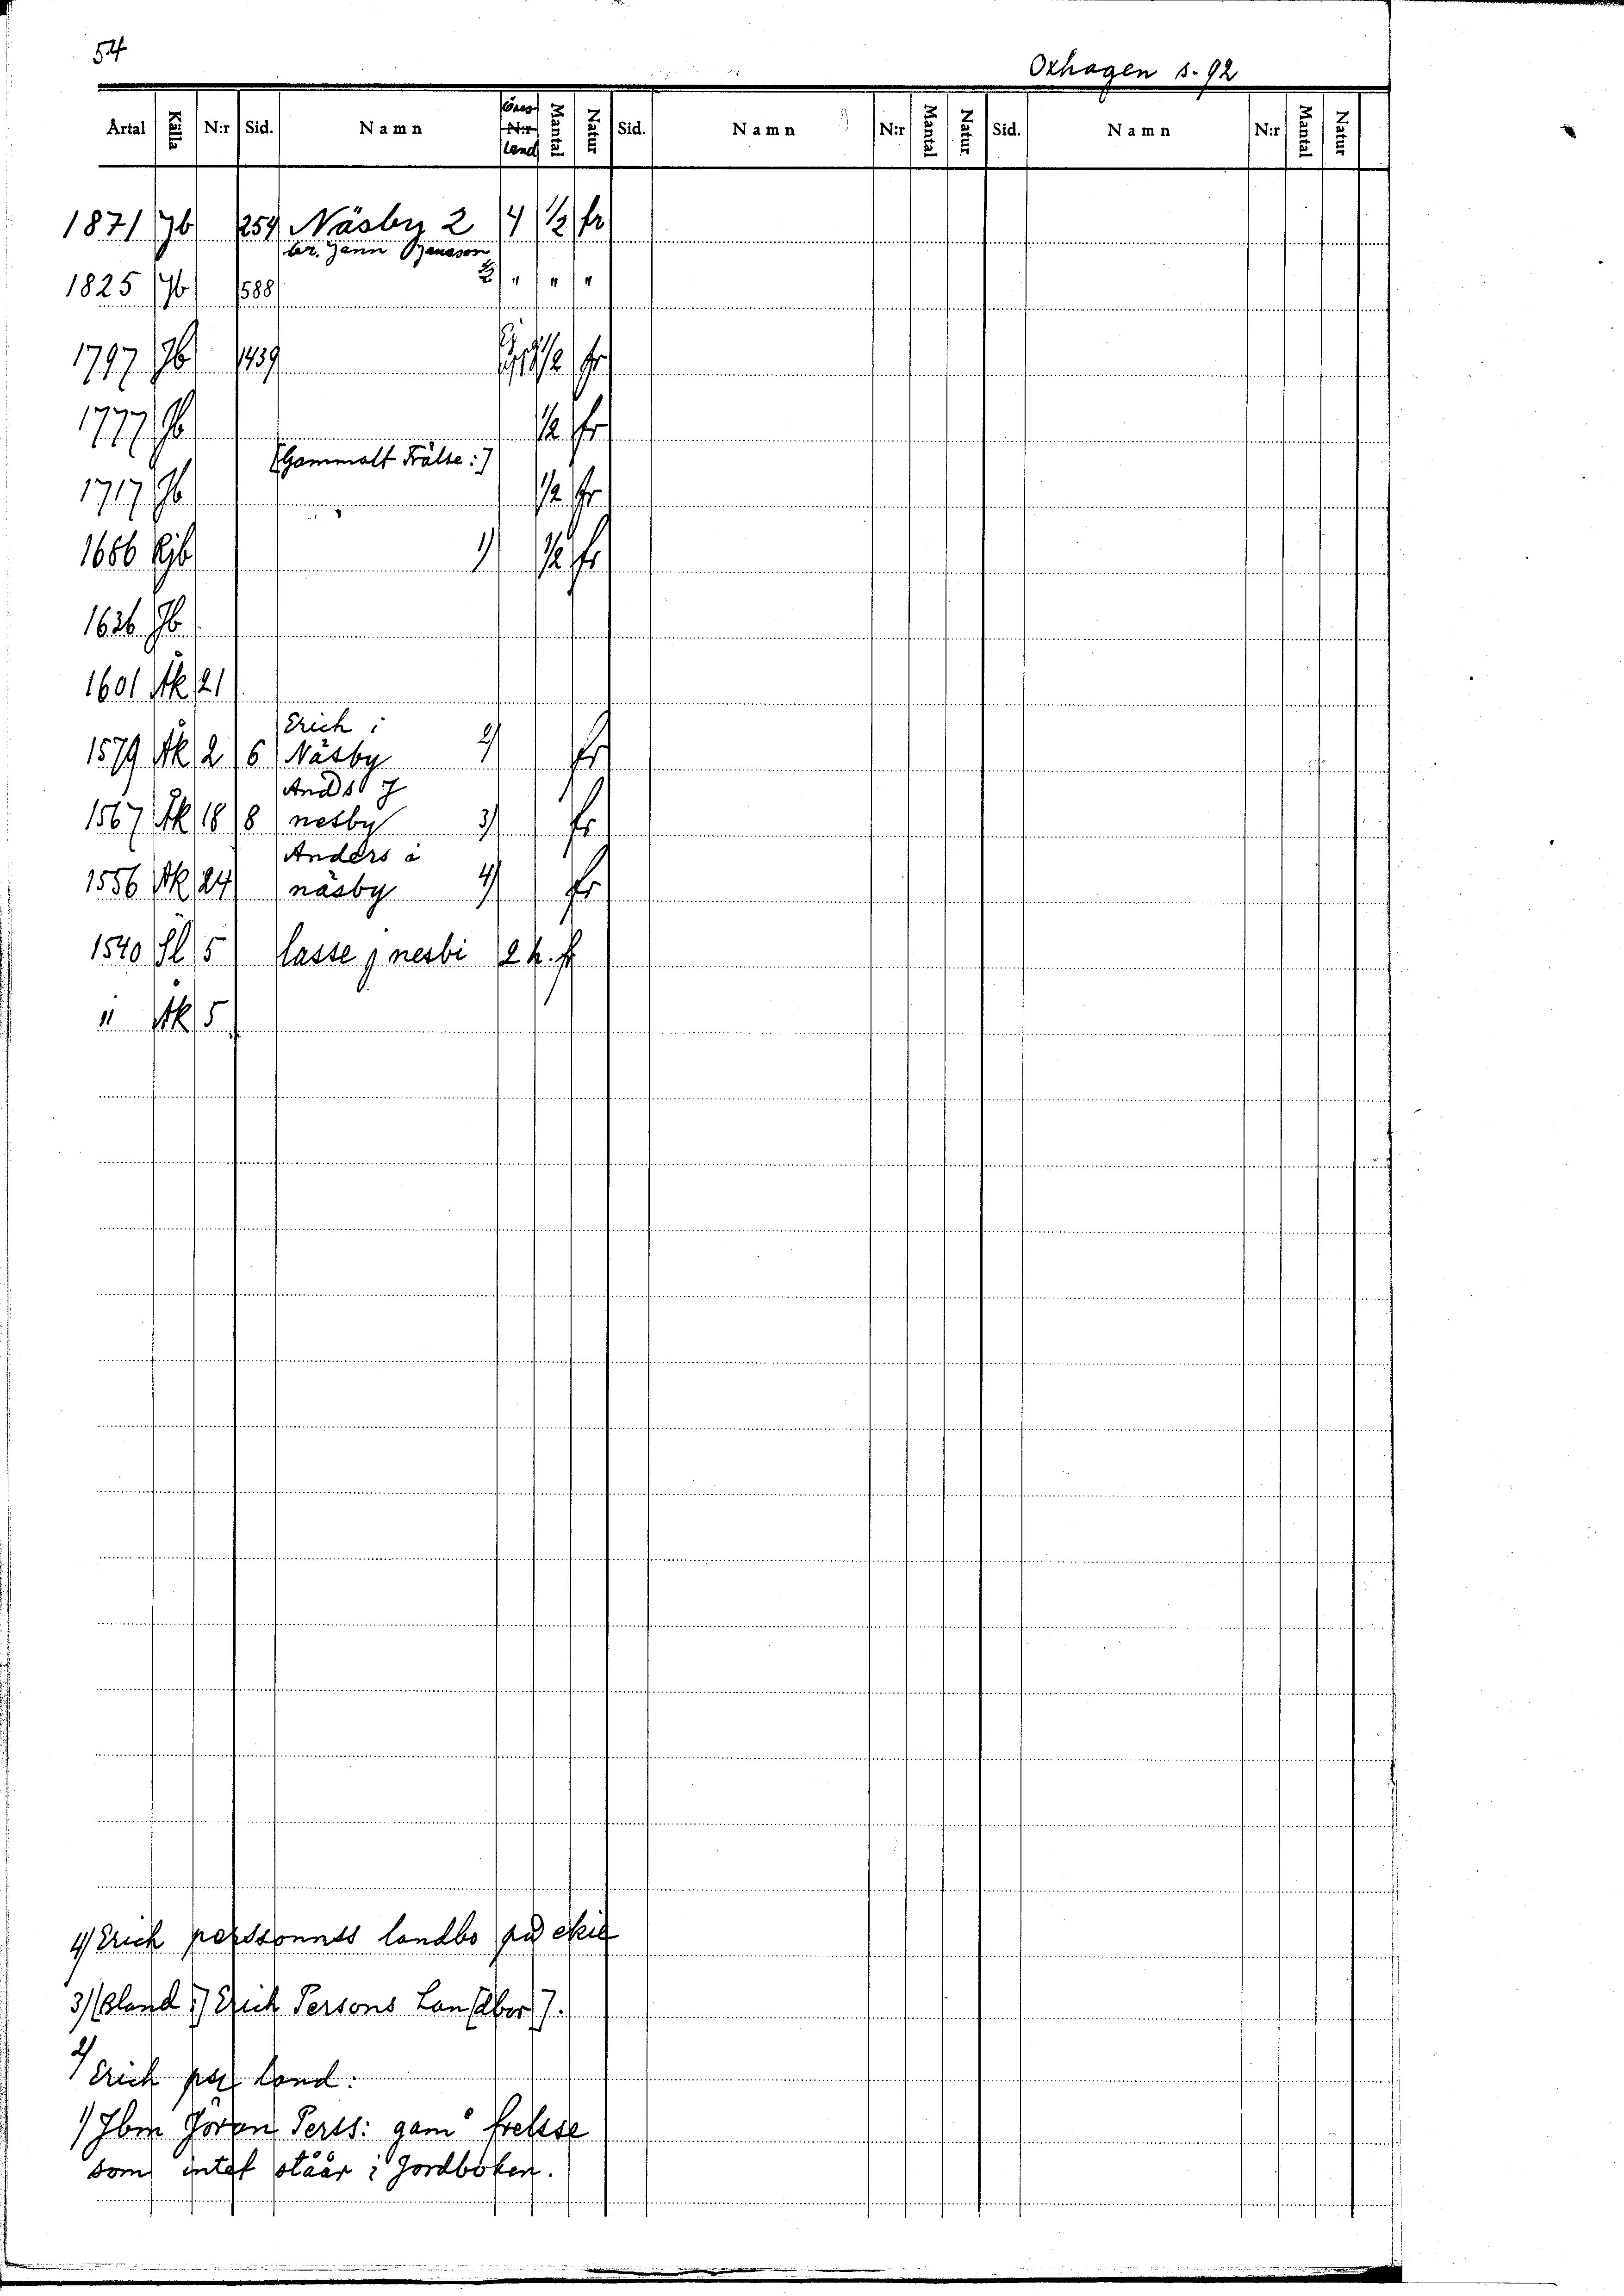 54
Oxhagen s. 92
Årtal Källa N:r Sid. Namn Öres N:r land Mantal Natur Sid. Namn N:r Mantal Natur Sid. Namn N:r Mantal Natur
1871 Jb 254 Näsby 2 4 1/2 fr
br. Jann
1825 Jb 588 2 " " "
1797 Jb 1439 1/2 fr
1777 Jb 1/2 fr
[Gammalt Frälse:]
1717 Jb 1/2 fr
1686 Rjb 1) 1/2 fr
1636 Jb
1601 Äk 21
Erich i
1579 Äk 2 6 Näsby 2) fr
Ands J
1567 Äk 18 8 nesby 3) fr
Anders i
1556 Äk 24 näsby 4) fr
1540 Sl 5 lasse j nesbi 2 h. fr
" Äk 5
4) Erich perssonnss landbo på ekie
3) (Bland:) Erich Persons Lan[dbor].
2) Erich per Land:
1) Ibm Jöran Perss: gam° frelsse
som intet ståår i Jordboken.